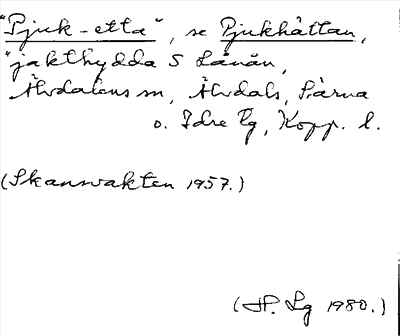 "Pjuk-etta", se Pjukhättan,
"jakthydda S Lånån,
Älvdalens sn, Älvdals, Särna
o. Idre tg, Kopp. l.
(Skansvakten 1957.)
(H. Lg 1980.)